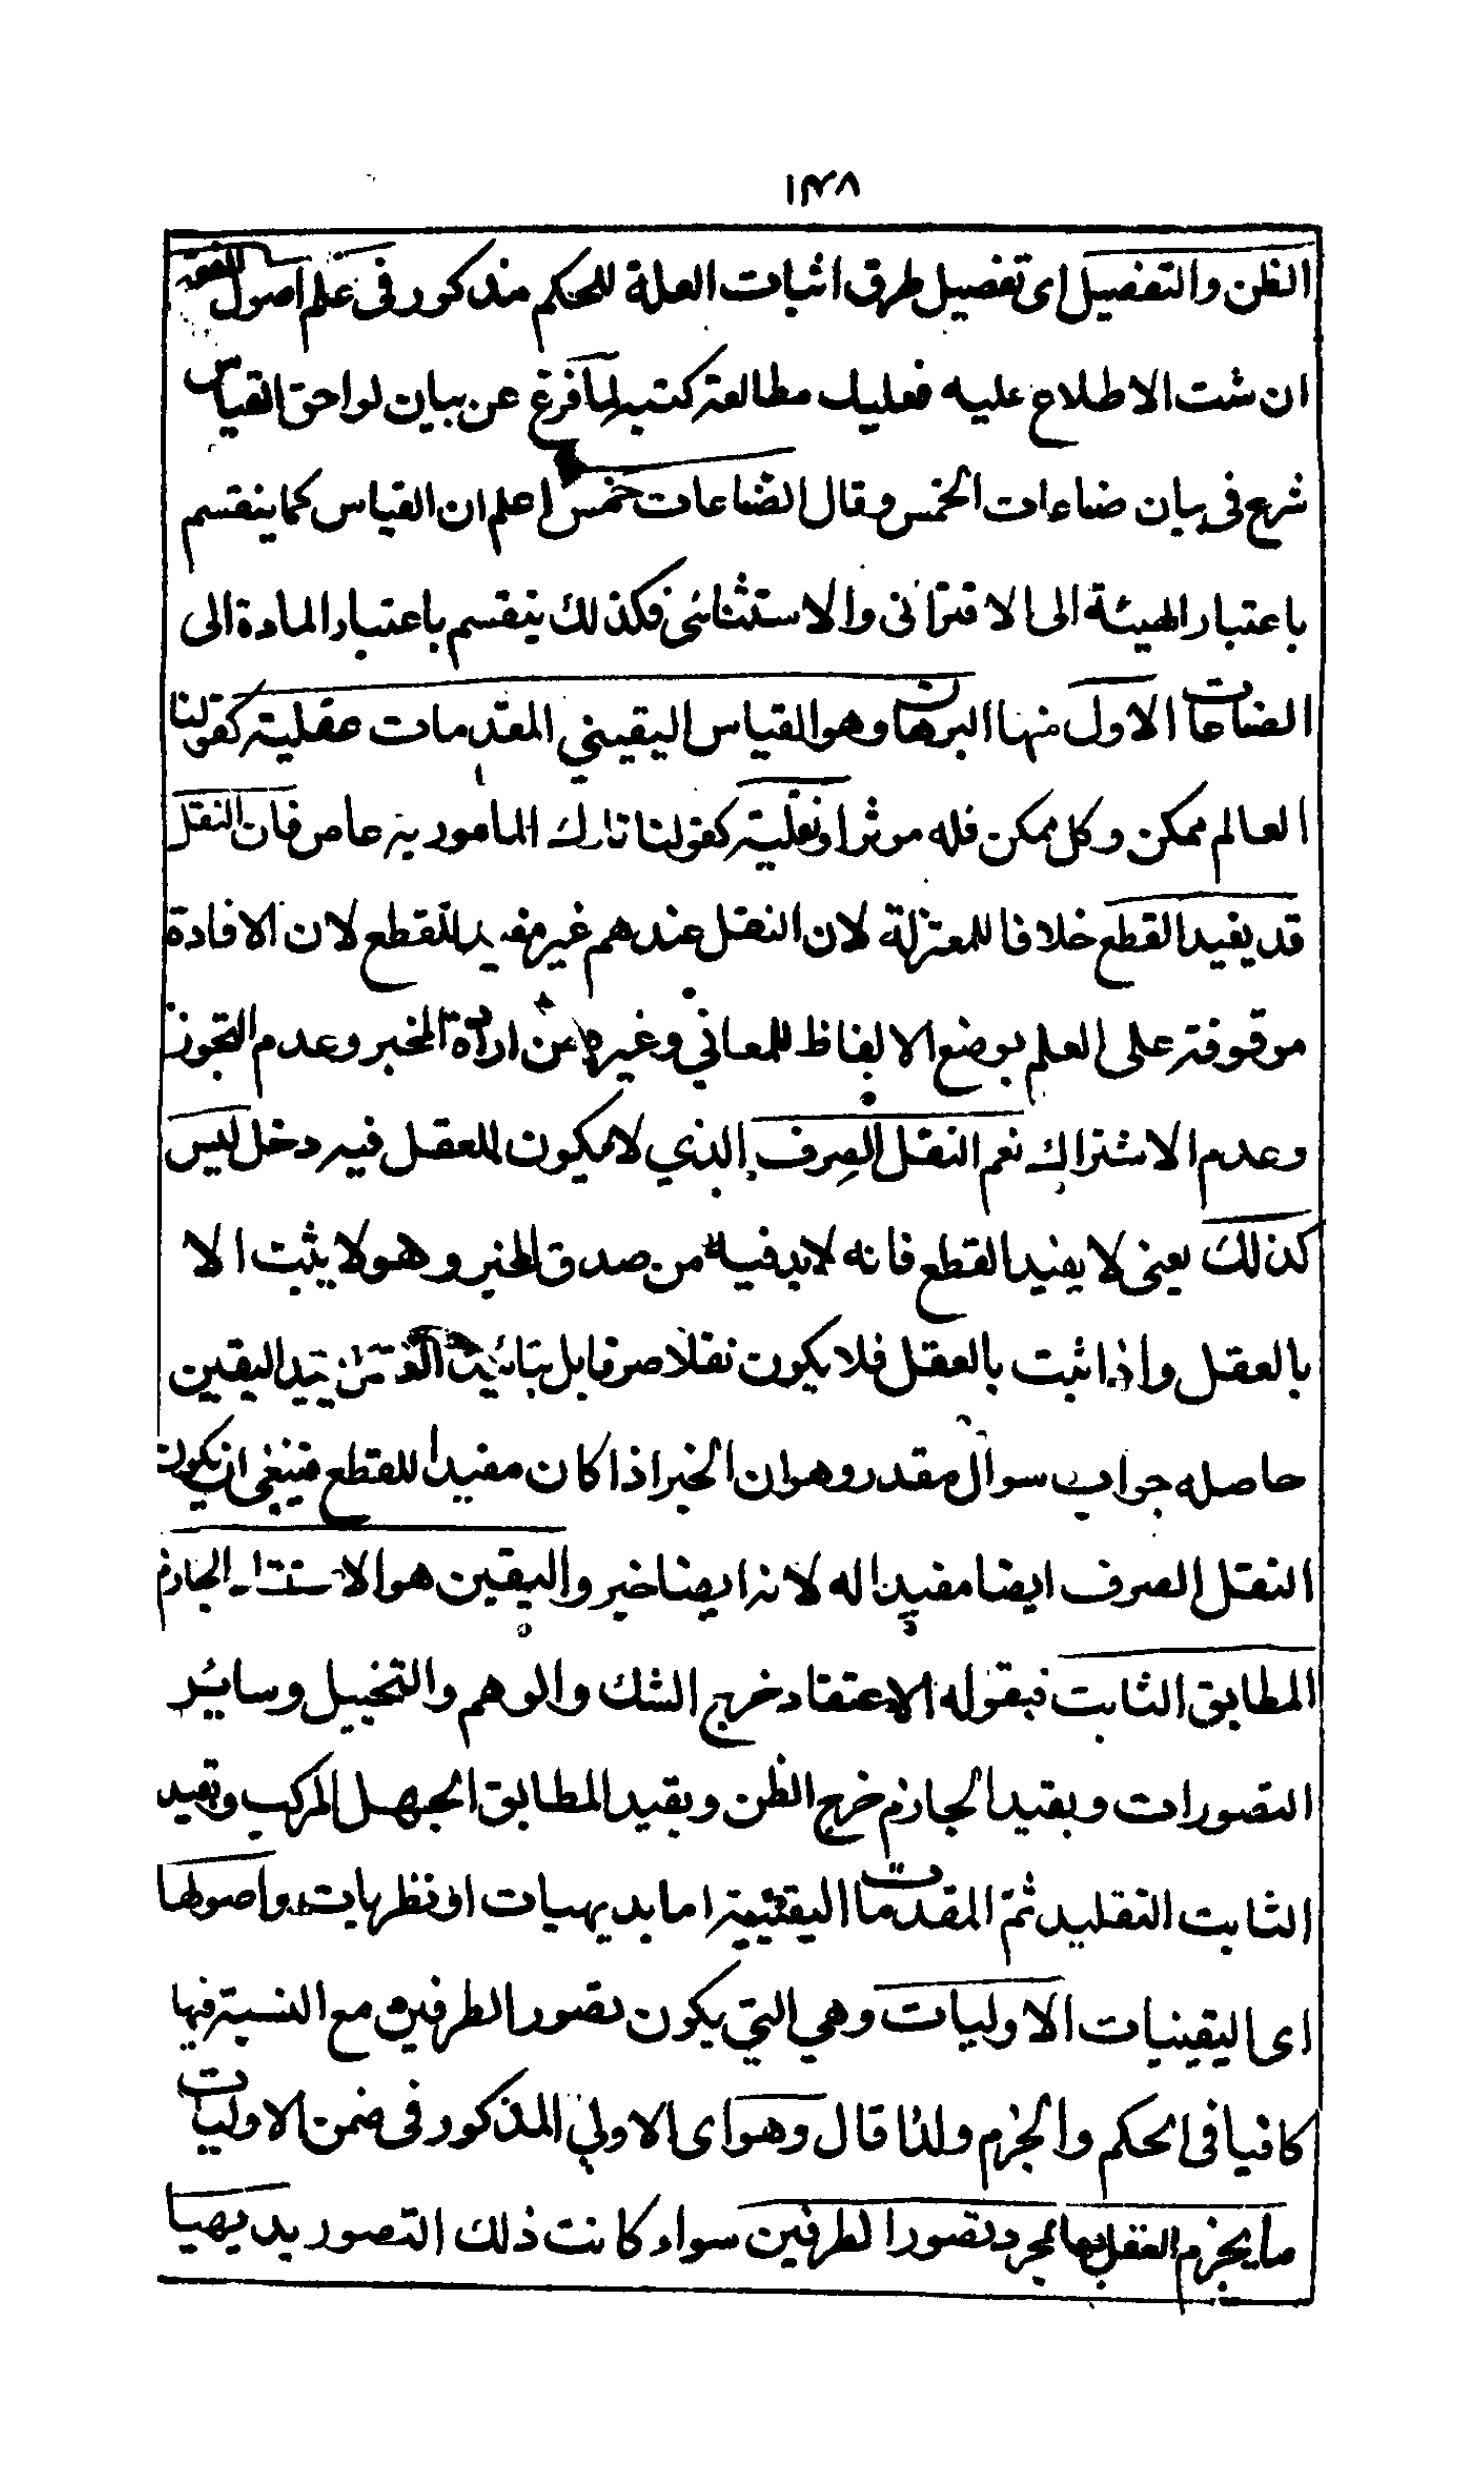 ١٣٨
الظن والتفصيل اى تفصيل طرق اثبات العلة للحكم مذكور فى علم اصول الفقه
ان شت الاطلاع عليه فعليك مطالعة كتبه لما فرغ عن بيان لواحق القياس
شرع فى بيان صناعات الخمس وقال الصناعات خمس اعلم ان القياس كما ينقسم
باعتبار الهيئة الى الاقترانى والاستثنائى فكذلك ينقسم باعتبار المادة الى
الصناعات الاول منها البرهان وهو القياس اليقيني المقدمات عقلية كقولنا
العالم ممكن وكل ممكن فله موثر او نقلية كقولنا تارك المامور به عاص فان النقل
قد يفيد القطع خلافا للمعتزلة لان النقل عندهم غير مفيد للقطع لان الافادة
موقوفة على العلم بوضع الالفاظ للمعاني وغيره من ارادة المخبر وعدم التجوز
وعدم الاشتراك نعم النقل الصِرف الذي لا يكون للعقل فيه دخل ليس
كذلك يعنى لا يفيد القطع فانه لا بد فيه من صدق الخبر وهو لا يثبت الا
بالعقل واذا ثبت بالعقل فلا يكون نقلا صرفا بل اليقين
حاصله جواب سوال مقدر وهو ان الخبر اذا كان مفيدا للقطع فينبغى ان يكون
النقل الصرف ايضا مفيدا له لانه ايضا خبر واليقين هو الجازم
المطابق الثابت فبقوله الاعتقاد خرج الشك والوهم والتخييل وسائر
التصورات وبقيد الجازم خرج الظن وبقيد المطابق الجهل المركب وبقيد
الثابت التقليد ثمّ المقدمات اليقينية اما بديهيات او نظريات واصولها
اى اليقينيات الاوليات وهي التي يكون تصور الطرفين مع النسبة فيها
كافيا فى الحكم والجزم ولذا قال وهو اى الاولي المذكور فى ضمن الاوليات
ما يجزم العقل بها بمجرد تصور الطرفين سواء كانت ذلك التصور بديهيا